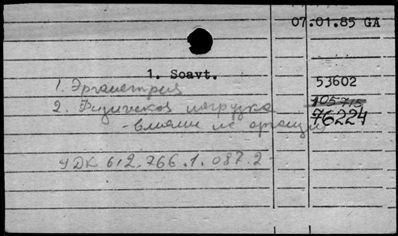 07.01.85 GA
1. Soavt.
53602
1. Эргометрия
105715
2. Физическая нагрузка
76224
- влияние на организм
УДК 612.766.1.087.2